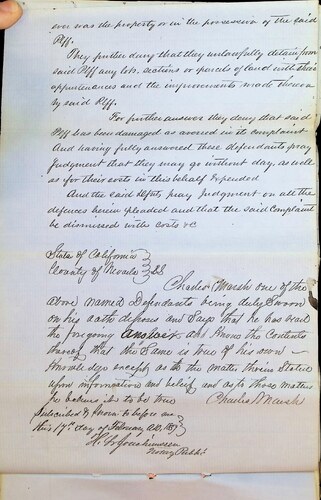 ever was the property or in the possession of the said
Plff.
They further deny that they unlawfully detain from
said Plff any lots, sections or parcels of land with their
appurtenances and the improvements made thereon
by said Plff.
For further answer they deny that said
Plff has been damaged as averred in its complaint
And having fully answered these defendants pray
Judgment that they may go without day, as well
as for their costs in this behalf Expended
And the said defts, pray Judgment on all the
defences herein pleaded and that the said Complaint
be dismissed with costs &c
State of California
County of Nevada } SS
Charles Marsh one of the
above named Defendants being duly Sworn
on his oath deposes and Says that he has read
the foregoing Answer and Knows the Contents
thereof that the Same is true of his own
Knowledge except as to the matters therein Stated
upon information and belief and as to those matters
he believes it to be true
Charles Marsh
Subscribed & Sworn to before me
this 17th day of February A.D.
Notary Public